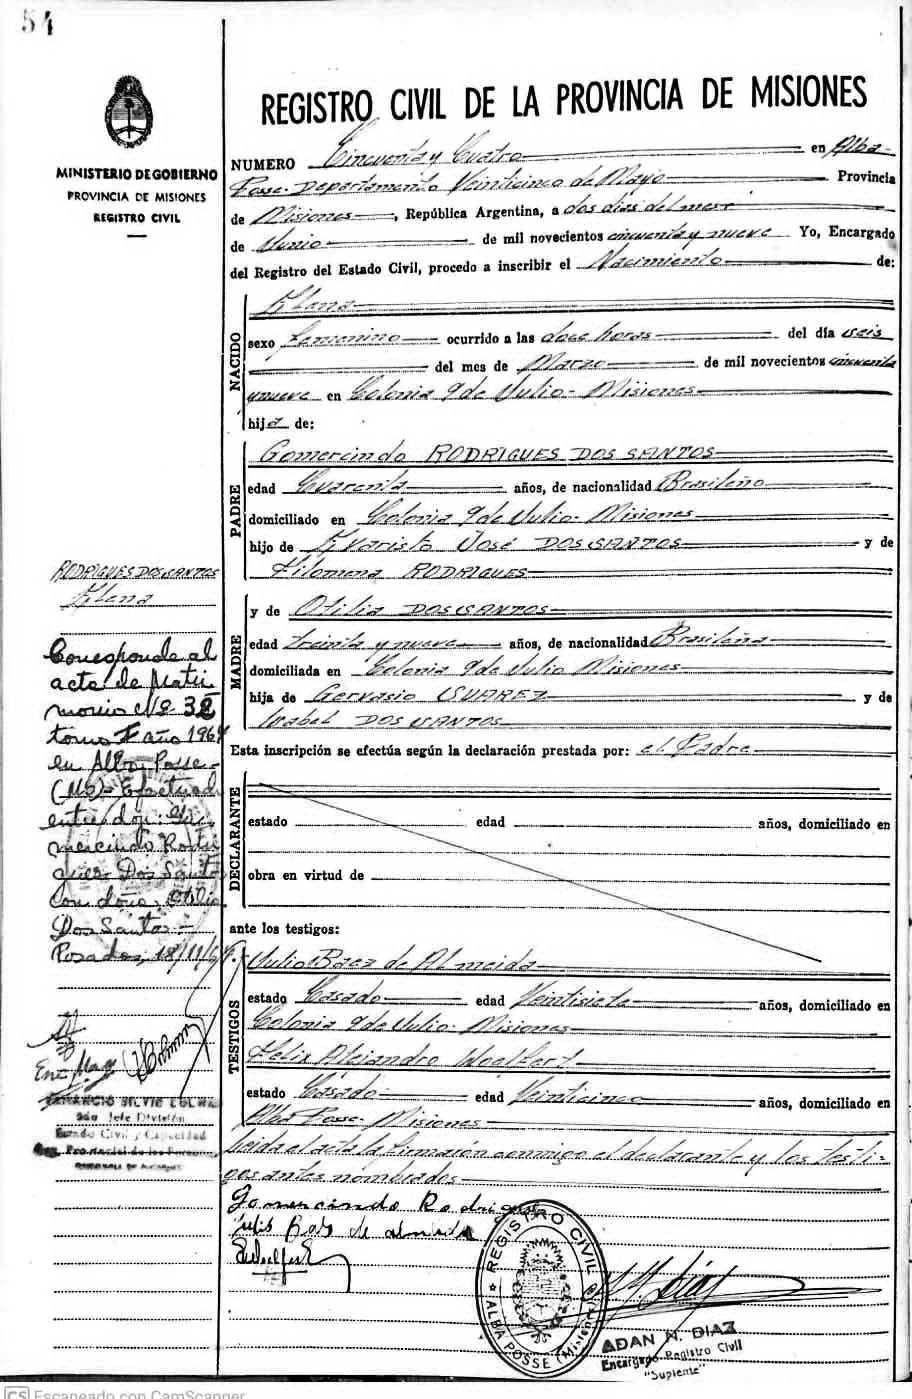 54
MINISTERIO DE GOBIERNO
PROVINCIA DE MISIONES
REGISTRO CIVIL
REGISTRO CIVIL DE LA PROVINCIA DE MISIONES
NUMERO Cincuenta y Cuatro en Alba
Posse- Departamento Veinticinco de Mayo Provincia
de Misiones, República Argentina, a dos dias del mes
de Junio de mil novecientos cincuenta y nueve Yo, Encargado
del Registro del Estado Civil, procedo a inscribir el Nacimiento de:
NACIDO
Elena
sexo femenino ocurrido a las doce horas del día seis
del mes de Marzo de mil novecientos cincuenta
y nueve en Colonia 9 de Julio- Misiones
hija de:
PADRE
Gomercindo RODRIGUES DOS SANTOS
edad Cuarenta años, de nacionalidad Brasileño
domiciliado en Colonia 9 de Julio- Misiones
hijo de Evaristo José DOS SANTOS y de
Filomena RODRIGUES
MADRE
y de Otilia DOS SANTOS
edad treinta y nueve años, de nacionalidad Brasileña
domiciliada en Colonia 9 de Julio Misiones
hija de Gervasio SUAREZ y de
Izabel DOS SANTOS
Esta inscripción se efectúa según la declaración prestada por: el Padre
DECLARANTE
estado edad años, domiciliado en
obra en virtud de
ante los testigos:
TESTIGOS
Julio Baez de Almeida
estado Casado edad Veintisiete años, domiciliado en
Colonia 9 de Julio- Misiones
Felix Alejandro
estado Casado edad Veinticinco años, domiciliado en
Alba Posse- Misiones
Leida el acta la firmarón conmigo el declarante y los testi-
gos antes nombrados
Gomercindo Rodrigues
de almeida
REGISTRO CIVIL
ALBA POSSE (Misiones)
ADAN N. DIAZ
Encargado Registro Civil
"Suplente"
RODRIGUES DOS SANTOS
Elena
Corresponde al
acta de Matri
monio Nº 32
tomo I año 196
en Alba Posse-
(Ms)- Efectuado
entre don: Gu
mercindo Rodri
gues Dos Santos
con doña: Otilia
Dos Santos-
Posadas, 18/11/6
Sub Jefe División
Estado Civil y Capacidad
Reg. Provincial de las Personas
CS Escaneado con CamScanner